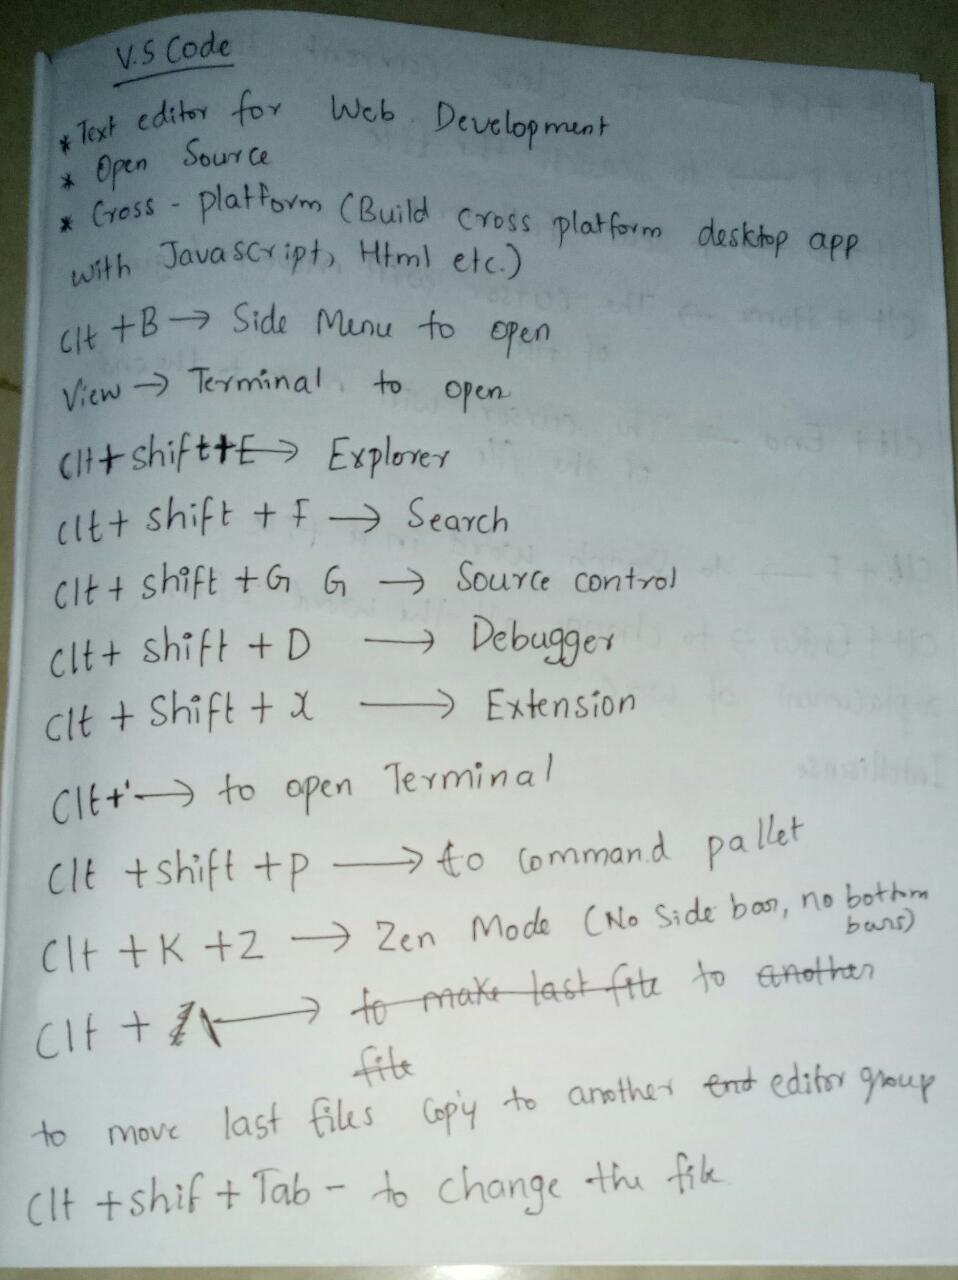 V.S Code
* Text editor for Web Development
* Open Source
* Cross - platform (Build cross platform desktop app
with JavaScript, Html etc.)
Clt + B → Side Menu to open
View → Terminal to open
Clt + shift + E → Explorer
Clt + shift + F → Search
Clt + shift + G G → Source control
Clt + shift + D → Debugger
Clt + Shift + X → Extension
Clt + ' → to open Terminal
Clt + shift + P → to command pallet
Clt + K + Z → Zen Mode (No Side bar, no bottom
bars)
Clt + \ → to make last file to another
file
to move last files copy to another end editor group
Clt + shif + Tab - to change the file